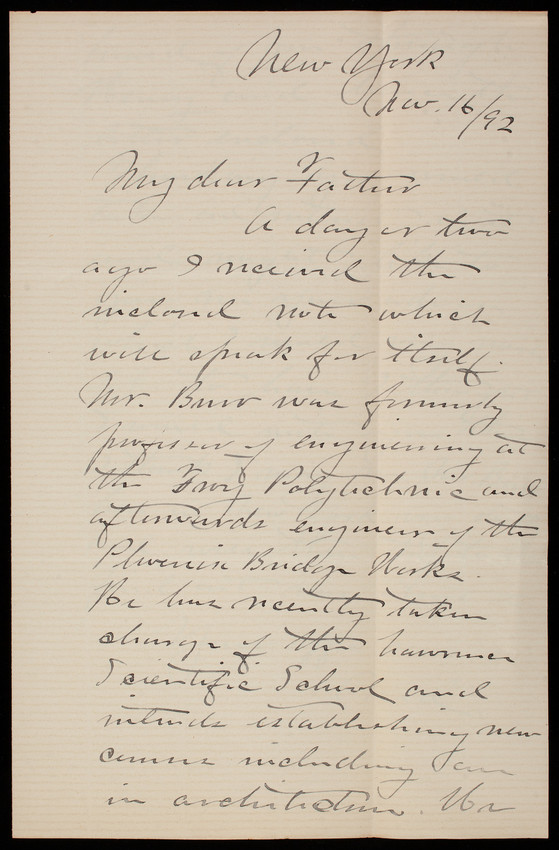 New York
Nov. 16/92
My dear Father
A day or two
ago I received the
inclosed note which
will speak for itself.
Mr. Burr was formerly
professor of engineering at
the Troy Polytechnic and
afterwards engineer of the
Phoenix Bridge Works.
He has recently taken
charge of the Lawrence
Scientific School and
intends establishing new
courses including one
in architecture. He